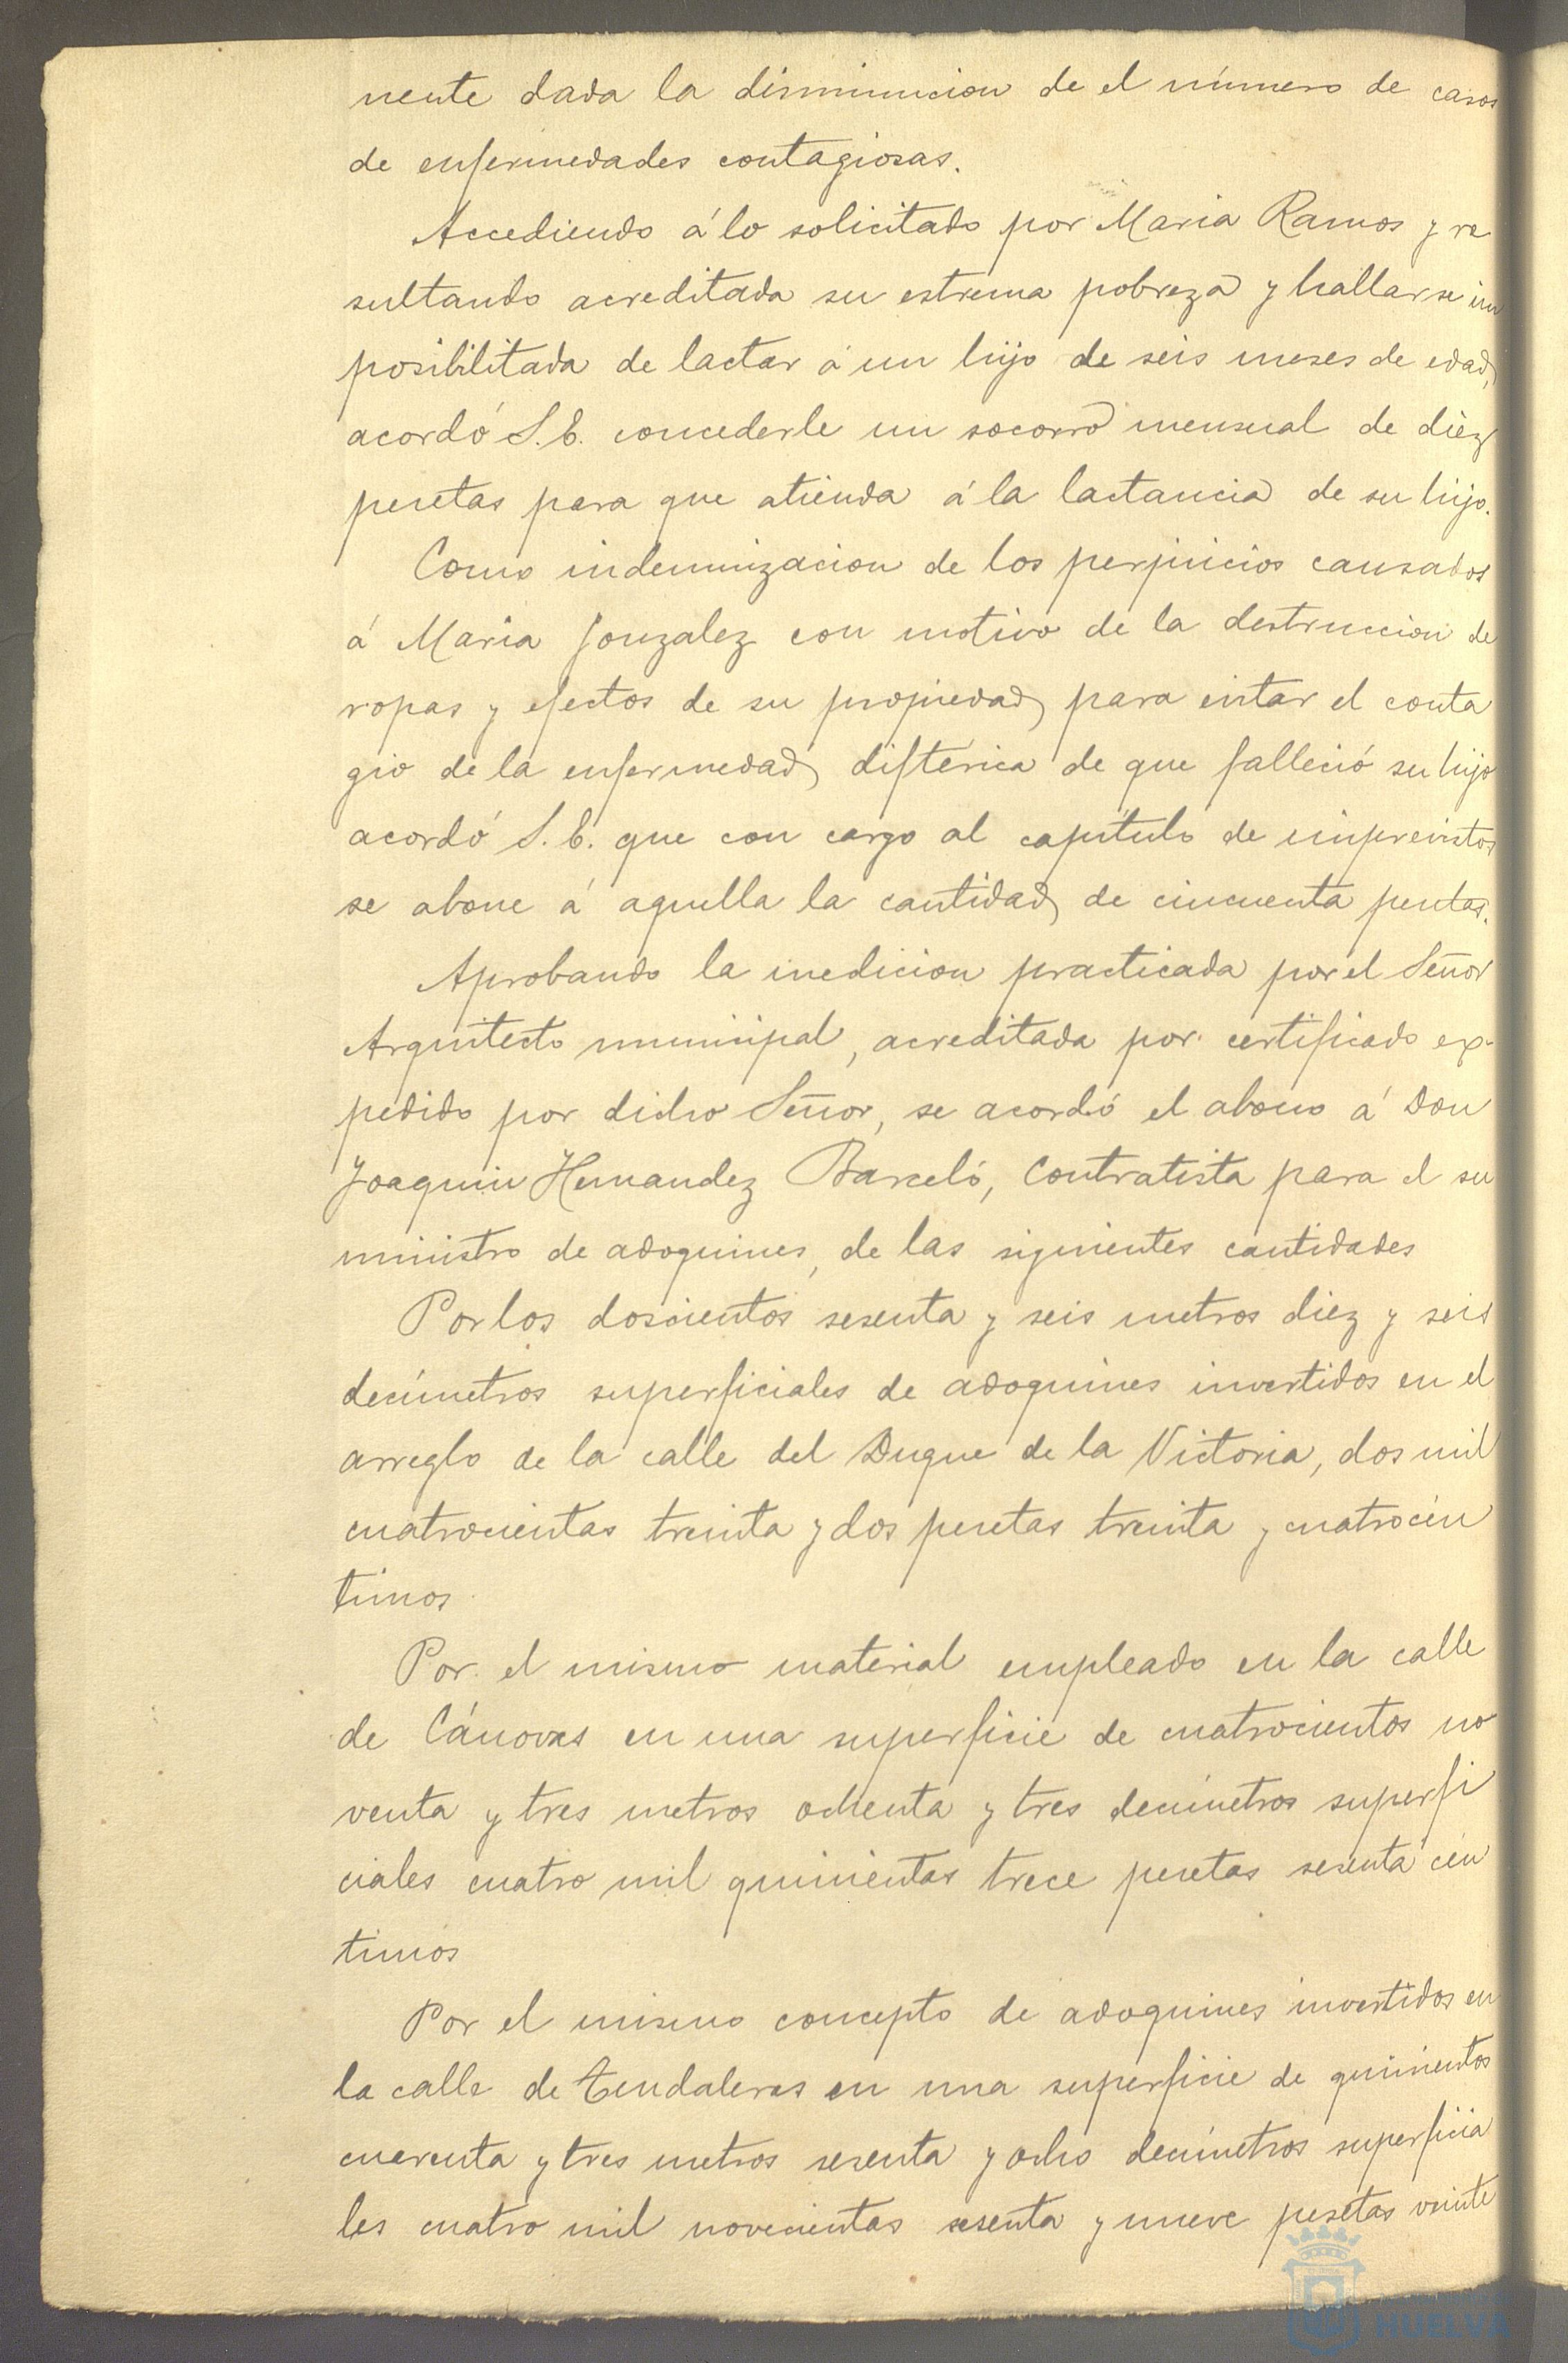 nente dada la disminucion de el número de casos
de enfermedades contagiosas.
Accediendo á lo solicitado por Maria Ramos y re
sultando acreditada su estrema pobreza y hallarse im
posibilitada de lactar á un hijo de seis meses de edad,
acordó S.E. concederle un socorro mensual de diez
pesetas para que atienda á la lactancia de su hijo.
Como indemnizacion de los perjuicios causados
á Maria Gonzalez con motivo de la destruccion de
ropas y efectos de su propiedad para evitar el conta
gio de la enfermedad diftérica de que falleció su hijo
acordó S.E. que con cargo al capítulo de imprevistos
se abone á aquella la cantidad de cincuenta pesetas.
Aprobando la medicion practicada por el Señor
Arquitecto municipal, acreditada por certificado ex-
pedido por dicho Señor, se acordó el abono á Don
Joaquin Hernandez Barceló, Contratista para el su
ministro de adoquines, de las siguientes cantidades
Por los doscientos sesenta y seis metros diez y seis
decímetros superficiales de adoquines invertidos en el
arreglo de la calle del Duque de la Victoria, dos mil
cuatrocientas treinta y dos pesetas treinta y cuatro cén
timos
Por el mismo material empleado en la calle
de Cánovas en una superficie de cuatrocientos no
venta y tres metros ochenta y tres decímetros superfi
ciales cuatro mil quinientas trece pesetas sesenta cén
timos
Por el mismo concepto de adoquines invertidos en
la calle de Tendaleras en una superficie de quinientos
cuarenta y tres metros sesenta y ocho decímetros superficia
les cuatro mil novecientas sesenta y nueve pesetas veinte
HUELVA